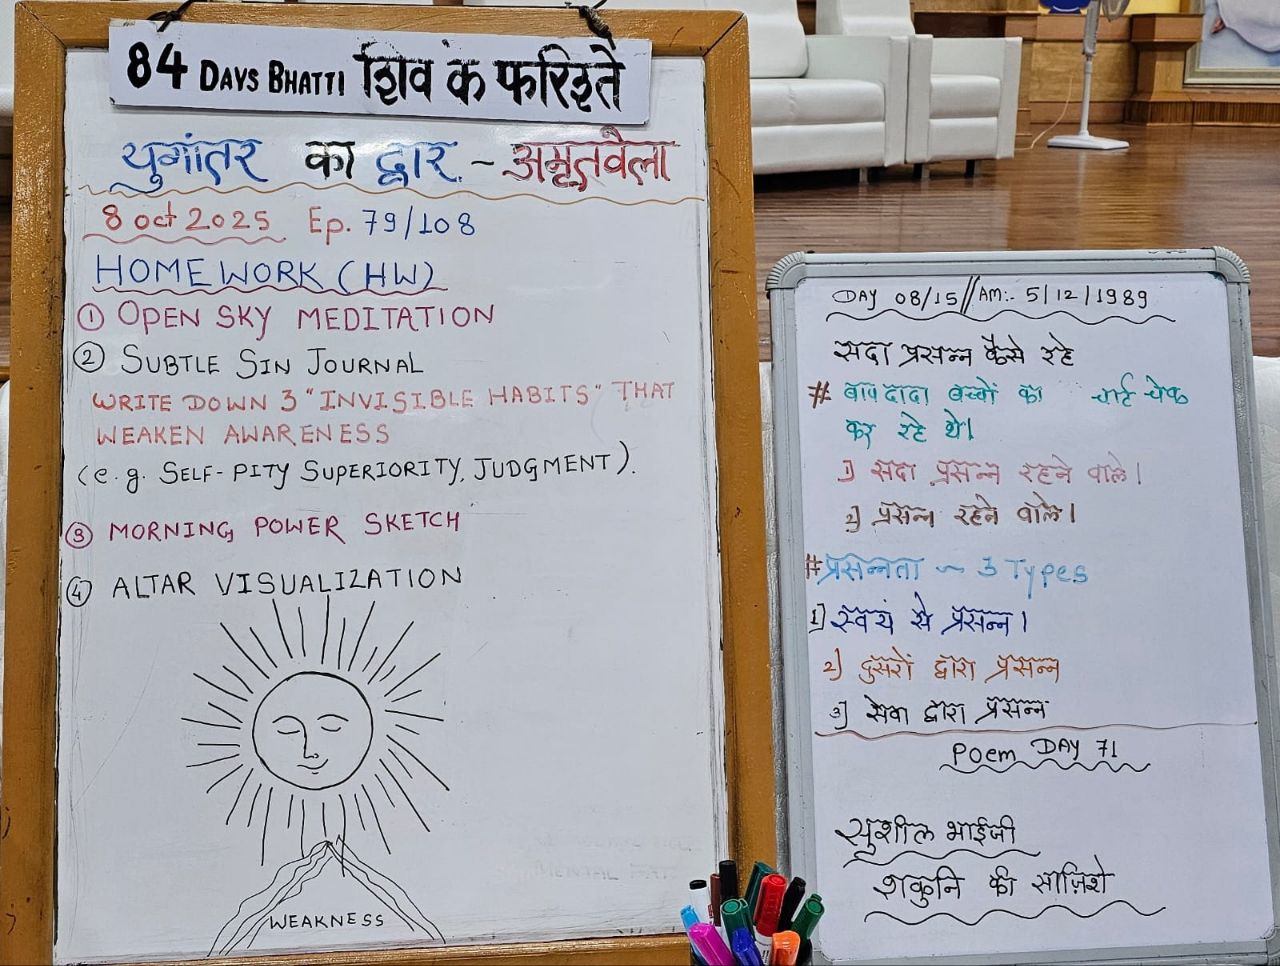 84 DAYS BHATTI शिव के फरिश्ते
युगांतर का द्वार - अमृतवेला
8 oct 2025 Ep. 79/108
HOMEWORK (HW)
① OPEN SKY MEDITATION
② SUBTLE SIN JOURNAL
WRITE DOWN 3 "INVISIBLE HABITS" THAT
WEAKEN AWARENESS
(e.g. SELF-PITY SUPERIORITY, JUDGMENT).
③ MORNING POWER SKETCH
④ ALTAR VISUALIZATION
WEAKNESS
DAY 08/15//AM:- 5/12/1989
सदा प्रसन्न कैसे रहे
# बापदादा बच्चों का चार्ट चेक
कर रहे थे।
1) सदा प्रसन्न रहने वाले।
2) प्रसन्न रहने वाले।
# प्रसन्नता ~ 3 Types
1) स्वयं से प्रसन्न।
2) दुसरों द्वारा प्रसन्न
3) सेवा द्वारा प्रसन्न
Poem DAY 71
सुशील भाईजी
शकुनि की साज़िशे